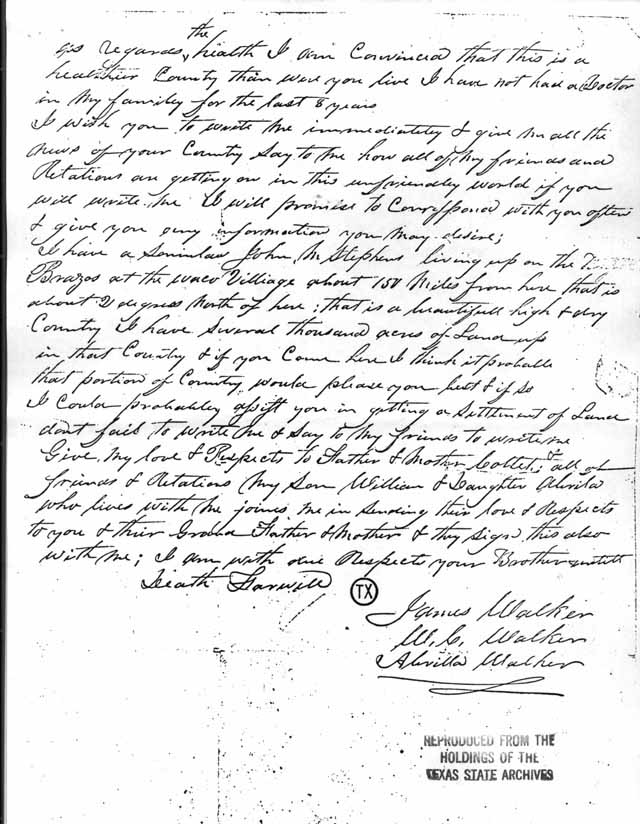 as regards, the health I am Convinced that this is a
healthier Country than were you live I have not had a Doctor
in my family for the last 8 years
I wish you to write me immediately & give me all the
news of your Country Say to me how all of my friends and
Relations are getting on in this unfriendly world if you
will write me I will promise to Corrispond with you often
& give you any information you may desire;
I have a Soninlaw John M Stephens living up on the
Brazos at the waco Villiage about 150 Miles from here that is
about 2 degress North of here; that is a beautifull high & dry
Country I have Several thousand acres of Land up
in that Country & if you Come here I think it probable
that portion of Country would please you best & if so
I Could probably assist you in getting a Settlement of Land
dont fail to write me & Say to My friends to write me
Give my love & Respects to Father & Mother & all of
friends & Relations My Son William & Daughter Alvilla
who lives with me joines me in sending their love & Respects
to you & their Grand Father & Mother & they Sign this also
with me; I am with due Respects your Brother untill
Death Farwell
TX
James Walker
W. C. Walker
Alvilla Walker
REPRODUCED FROM THE
HOLDINGS OF THE
TEXAS STATE ARCHIVES